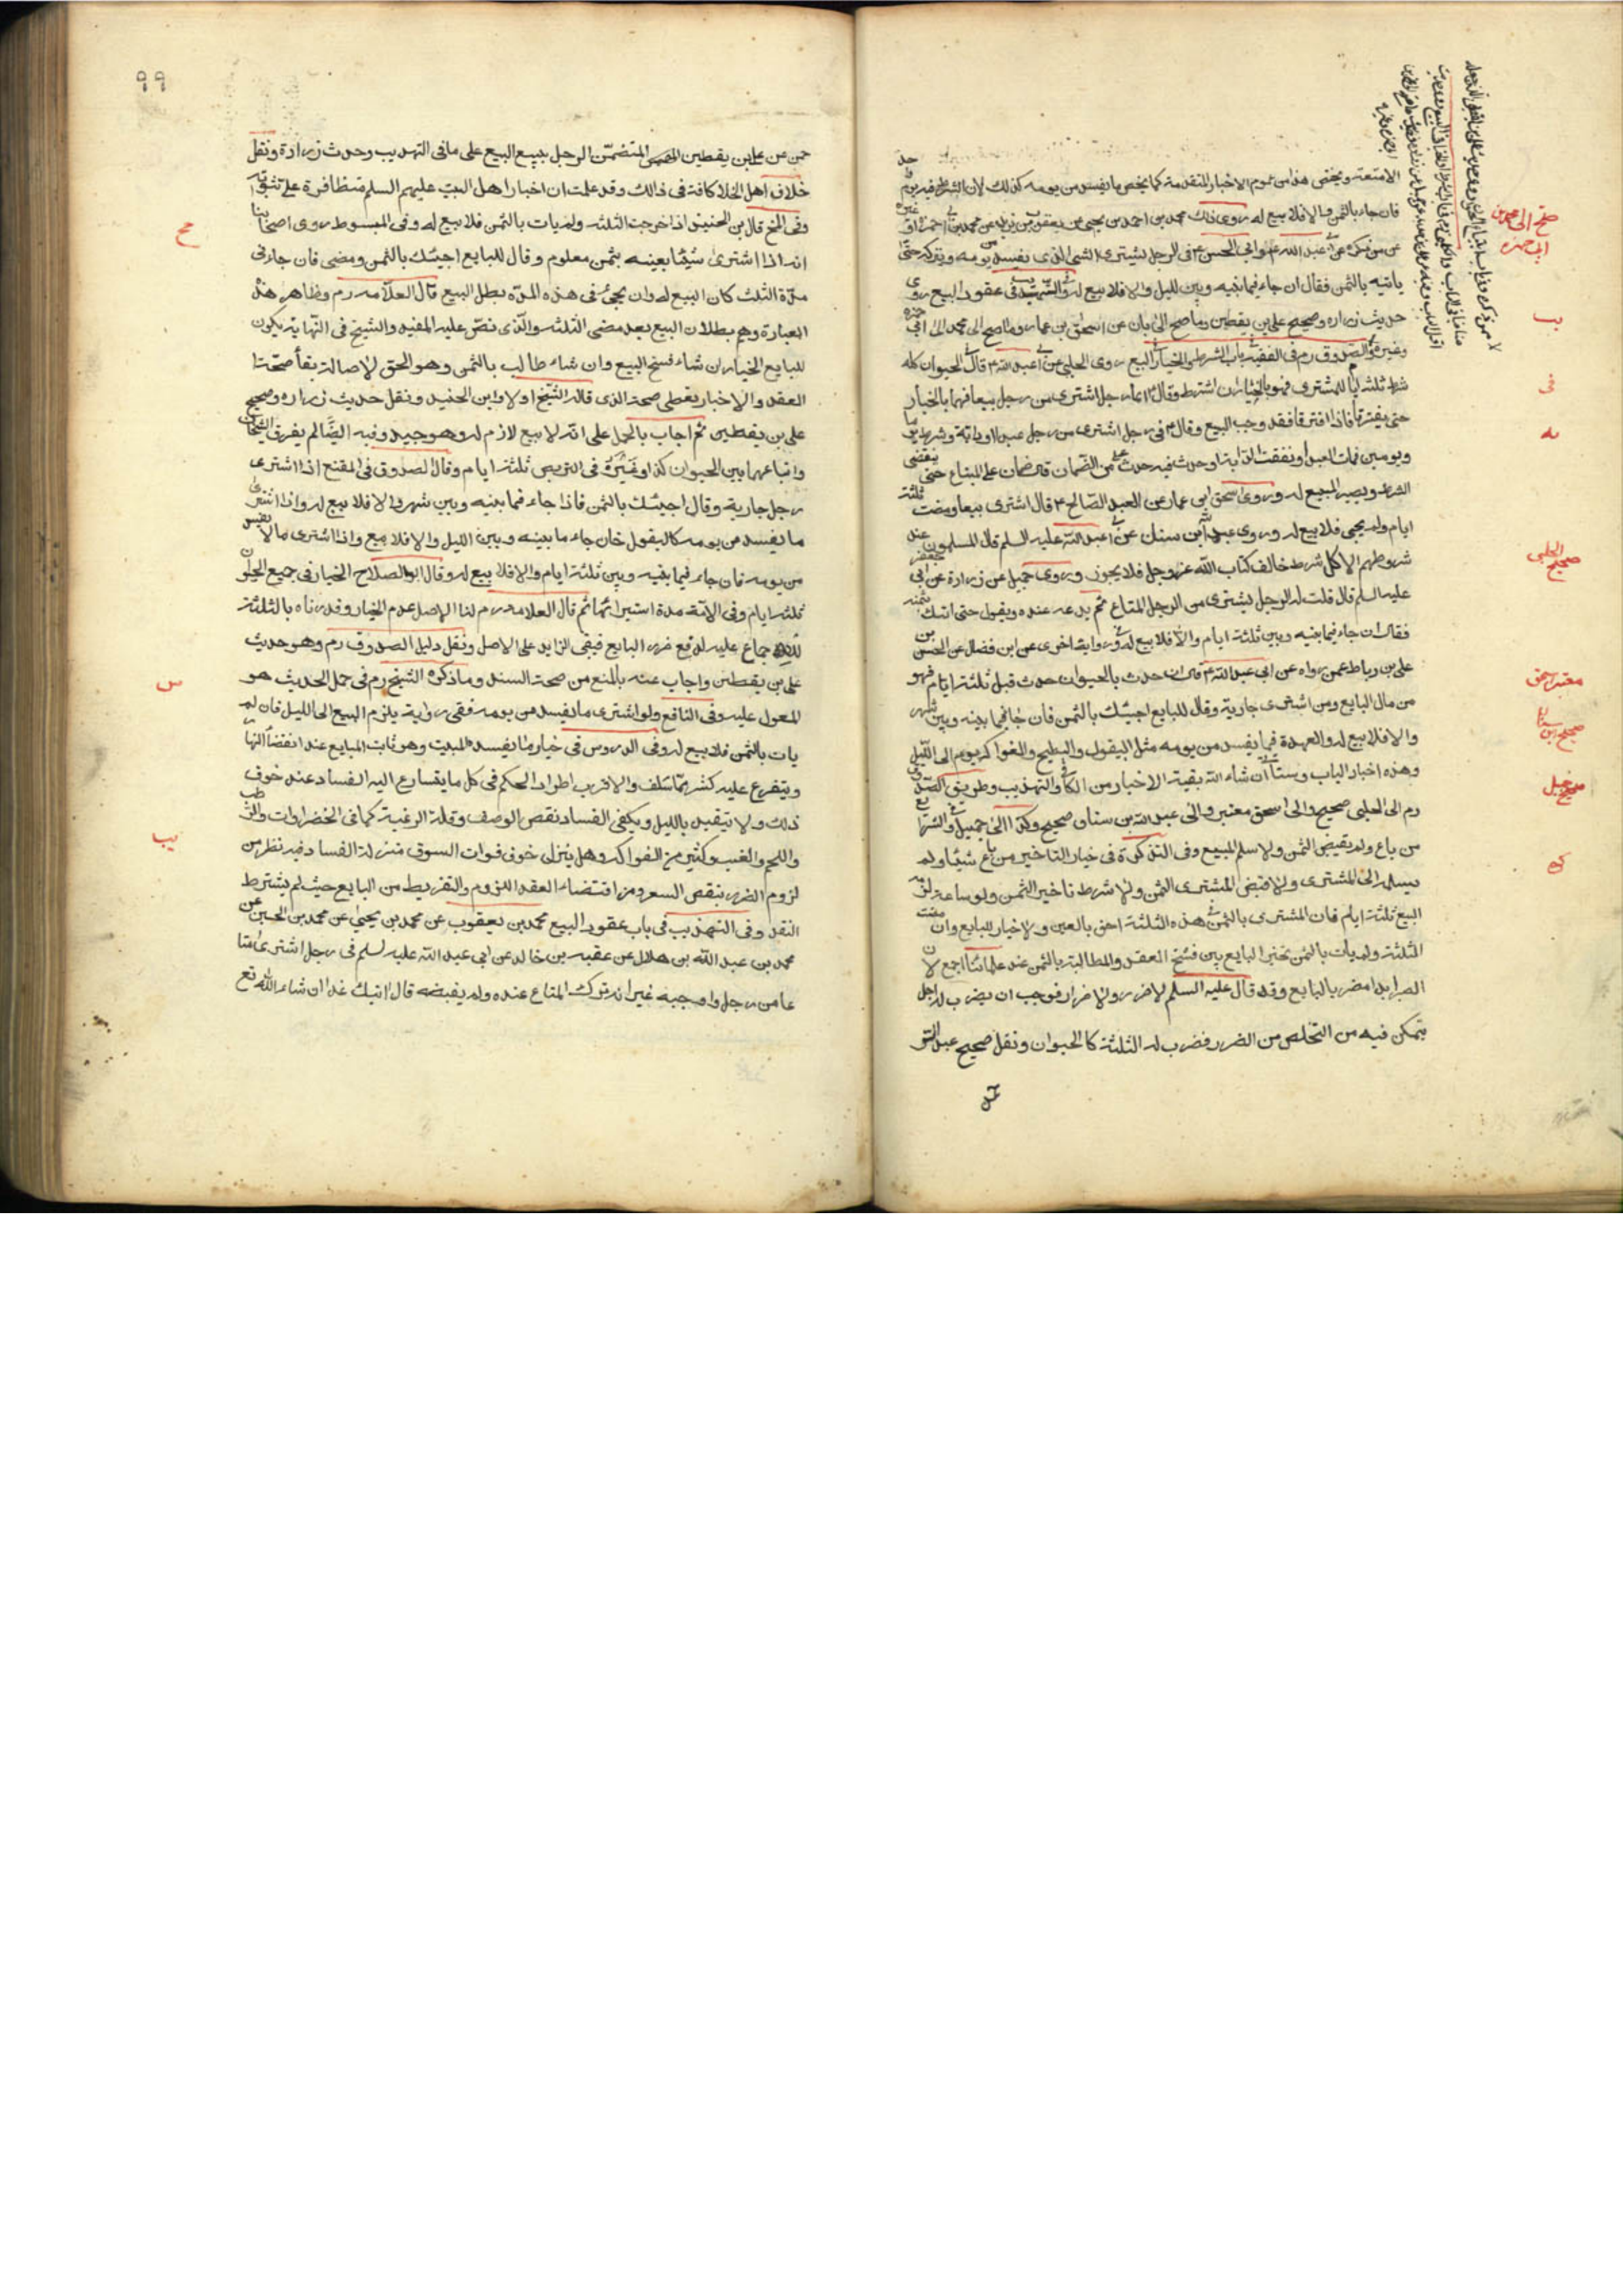 الامتعة ويخص هذا من عموم الاخبار المتقدمة كما يخص ما يفسد من يومه كذلك لان الشرط فيه يوم
فان جاء بالثمن والا فلا بيع له روى ذلك محمد بن احمد بن يحيى عن يعقوب بن يزيد عن محمد بن ابى حمزة او غيره
عمن ذكره عن ابى عبد الله ع او ابى الحسن ع فى الرجل يشترى الشئ الذى يفسد من يومه ويتركه حتى
ياتيه بالثمن فقال ان جاء فيما بينه وبين الليل والا فلا بيع له وفى التهذيب فى عقود البيع روى
حديث زرارة وصحيح على بن يقطين وما صح الى ابان عن اسحق بن عمار وما صح الى محمد بن ابى حمزة
وغيره الصدوق رم فى الفقيه باب الشرط والخيار فى البيع روى الحلبى عن ابى عبد الله ع قال فى الحيوان كله
شرط ثلثة ايام للمشترى فهو بالخيار ان اشترط وقال ع ايما رجل اشترى من رجل بيعا فهما بالخيار
حتى يفترقا فاذا افترقا فقد وجب البيع وقال ع فى رجل اشترى من رجل عبدا او دابة وشرط يوما
ويومين فمات العبد او نفقت الدابة او حدث فيه حدث على من الضمان قال لا ضمان على المبتاع حتى ينقضى
الشرط ويصير المبيع له وروى اسحق بن عمار عن العبد الصالح ع قال من اشترى بيعا ومضت ثلثة
ايام ولم يجئ فلا بيع له وروى عبد الله بن سنان عن ابى عبد الله عليه السلم قال المسلمون عند
شروطهم الا كل شرط خالف كتاب الله عز وجل فلا يجوز وروى جميل عن زرارة عن ابى جعفر
عليه السلم قال قلت له الرجل يشترى من الرجل المتاع ثم يدعه عنده ويقول حتى اتيك بثمنه
فقال ان جاء فيما بينه وبين ثلثة ايام والا فلا بيع له وفى رواية اخرى عن ابن فضال عن الحسن بن
على بن رباط عمن رواه عن ابى عبد الله ع قال ان حدث بالحيوان حدث قبل ثلثة ايام فهو
من مال البايع ومن اشترى جارية وقال للبايع اجيئك بالثمن فان جاء فيما بينه وبين شهر
والا فلا بيع له والعهدة فيما يفسد من يومه مثل البقول والبطيخ والفواكه يوم الى الليل
وهذه اخبار الباب وستأتى ان شاء الله بقية الاخبار من الكافى والتهذيب وطريق الصدوق
رم الى الحلبى صحيح والى اسحق معتبر والى عبد الله بن سنان صحيح وكذا الى جميل وفى الشرايع
من باع ولم يقبض الثمن ولا سلم المبيع وفى التذكرة فى خيار التاخير من باع شيئا ولم
يسلمه الى المشترى ولا قبض المشترى الثمن ولا شرط تاخير الثمن ولو ساعة لزم
البيع ثلثة ايام فان المشترى بالثمن فى هذه الثلثة احق بالعين ولا خيار للبايع وان مضت
الثلثة ولم يات بالثمن تخير البايع بين فسخ العقد والمطالبة بالثمن عند علمائنا اجمع لان
الصبر ابدا مضر بالبايع وقد قال عليه السلم لا ضرر ولا ضرار فوجب ان يضرب له اجل
يتمكن فيه من التخلص من الضرر فضرب له الثلثة كالحيوان ونقل صحيح عبد الر
صح الى محمد بن ابى حمزة
صحيح الحلبى
معتبر اسحق
صحيح ابن سنان
صحيح جميل
٩٩
حمن عن على بن يقطين المتضمن الرجل يبيع البيع على ما فى التهذيب وحديث زرارة ونقل
خلاف اهل الخلاف كافة فى ذلك وقد علمت ان اخبار اهل البيت عليهم السلم متظافرة على
وفى المخ قال بن الجنيد اذا خرجت الثلثة ولم يات بالثمن فلا بيع له وفى المبسوط روى اصحابنا
انه اذا اشترى شيئا بعينه بثمن معلوم وقال للبايع اجيئك بالثمن ومضى فان جاء فى
مدة الثلث كان البيع له وان لم يجئ فى هذه المدة بطل البيع قال العلامه رم وظاهر هذه
العبارة وهم بطلان البيع بعد مضى الثلثة والذى نص عليه المفيد والشيخ فى النهاية يكون
للبايع الخيار ان شاء فسخ البيع وان شاء طالب بالثمن وهو الحق لاصالة بقاء صحة
العقد والاخبار تعطى صحة الذى قاله الشيخ اولا وابن الجنيد ونقل حديث زرارة وصحيح
على بن يقطين ثم اجاب بالحمل على انه لا بيع لازم له وهو جيد وفيه ايضا لم يفرق الشيخان
واتباعهما بين الحيوان كذا وغيره فى التربص ثلثة ايام وقال الصدوق فى المقنع اذا اشترى
رجل جارية وقال اجيئك بالثمن فاذا جاء فيما بينه وبين شهر والا فلا بيع له واذا اشترى
ما يفسد من يومه كالبقول فان جاء ما بينه وبين الليل والا فلا بيع واذا اشترى ما لا يفسد
من يومه فان جاء فيما بينه وبين ثلثة ايام والا فلا بيع له وقال ابو الصلاح الخيار فى جميع الحيوان
ثلثة ايام وفى الامة مدة استبرائها ثم قال العلامه رم لنا الاصل عدم الخيار وقدرناه بالثلثة
للاجماع عليه لدفع ضرر البايع فبقى الزايد على الاصل ونقل دليل الصدوق رم وهو حديث
على بن يقطين واجاب عنه بالمنع من صحة السند وما ذكره الشيخ رم فى حمل الحديث هو
المعول عليه وفى النافع ولو اشترى ما يفسد من يومه ففى رواية يلزم البيع الى الليل فان لم
يات بالثمن فلا بيع له وفى الدروس فى خيار ما يفسده المبيت وهو ثابت للبايع عند انقضاء النهار
ويتفرع عليه كثير مما سلف والاقرب اطراد الحكم فى كل ما يتسارع اليه الفساد عند خوف
ذلك ولا يتقيد بالليل ويكفى الفساد نقص الوصف وقلة الرغبة كما فى الخضراوات والرطب
واللحم والعنب وكثير من الفواكه وهل ينزل خوف فوات السوق منزلة الفساد فيه نظر من
لزوم الضرر بنقص السعر ومن اقتضاء العقد اللزوم والتفريط من البايع حيث لم يشترط
النقد وفى التهذيب فى باب عقود البيع محمد بن يعقوب عن محمد بن يحيى عن محمد بن الحسين عن
محمد بن عبد الله بن هلال عن عقبة بن خالد عن ابى عبد الله عليه السلم فى رجل اشترى متا
عا من رجل واوجبه غير انه ترك المتاع عنده ولم يقبضه قال اتيك غدا ان شاء الله تع